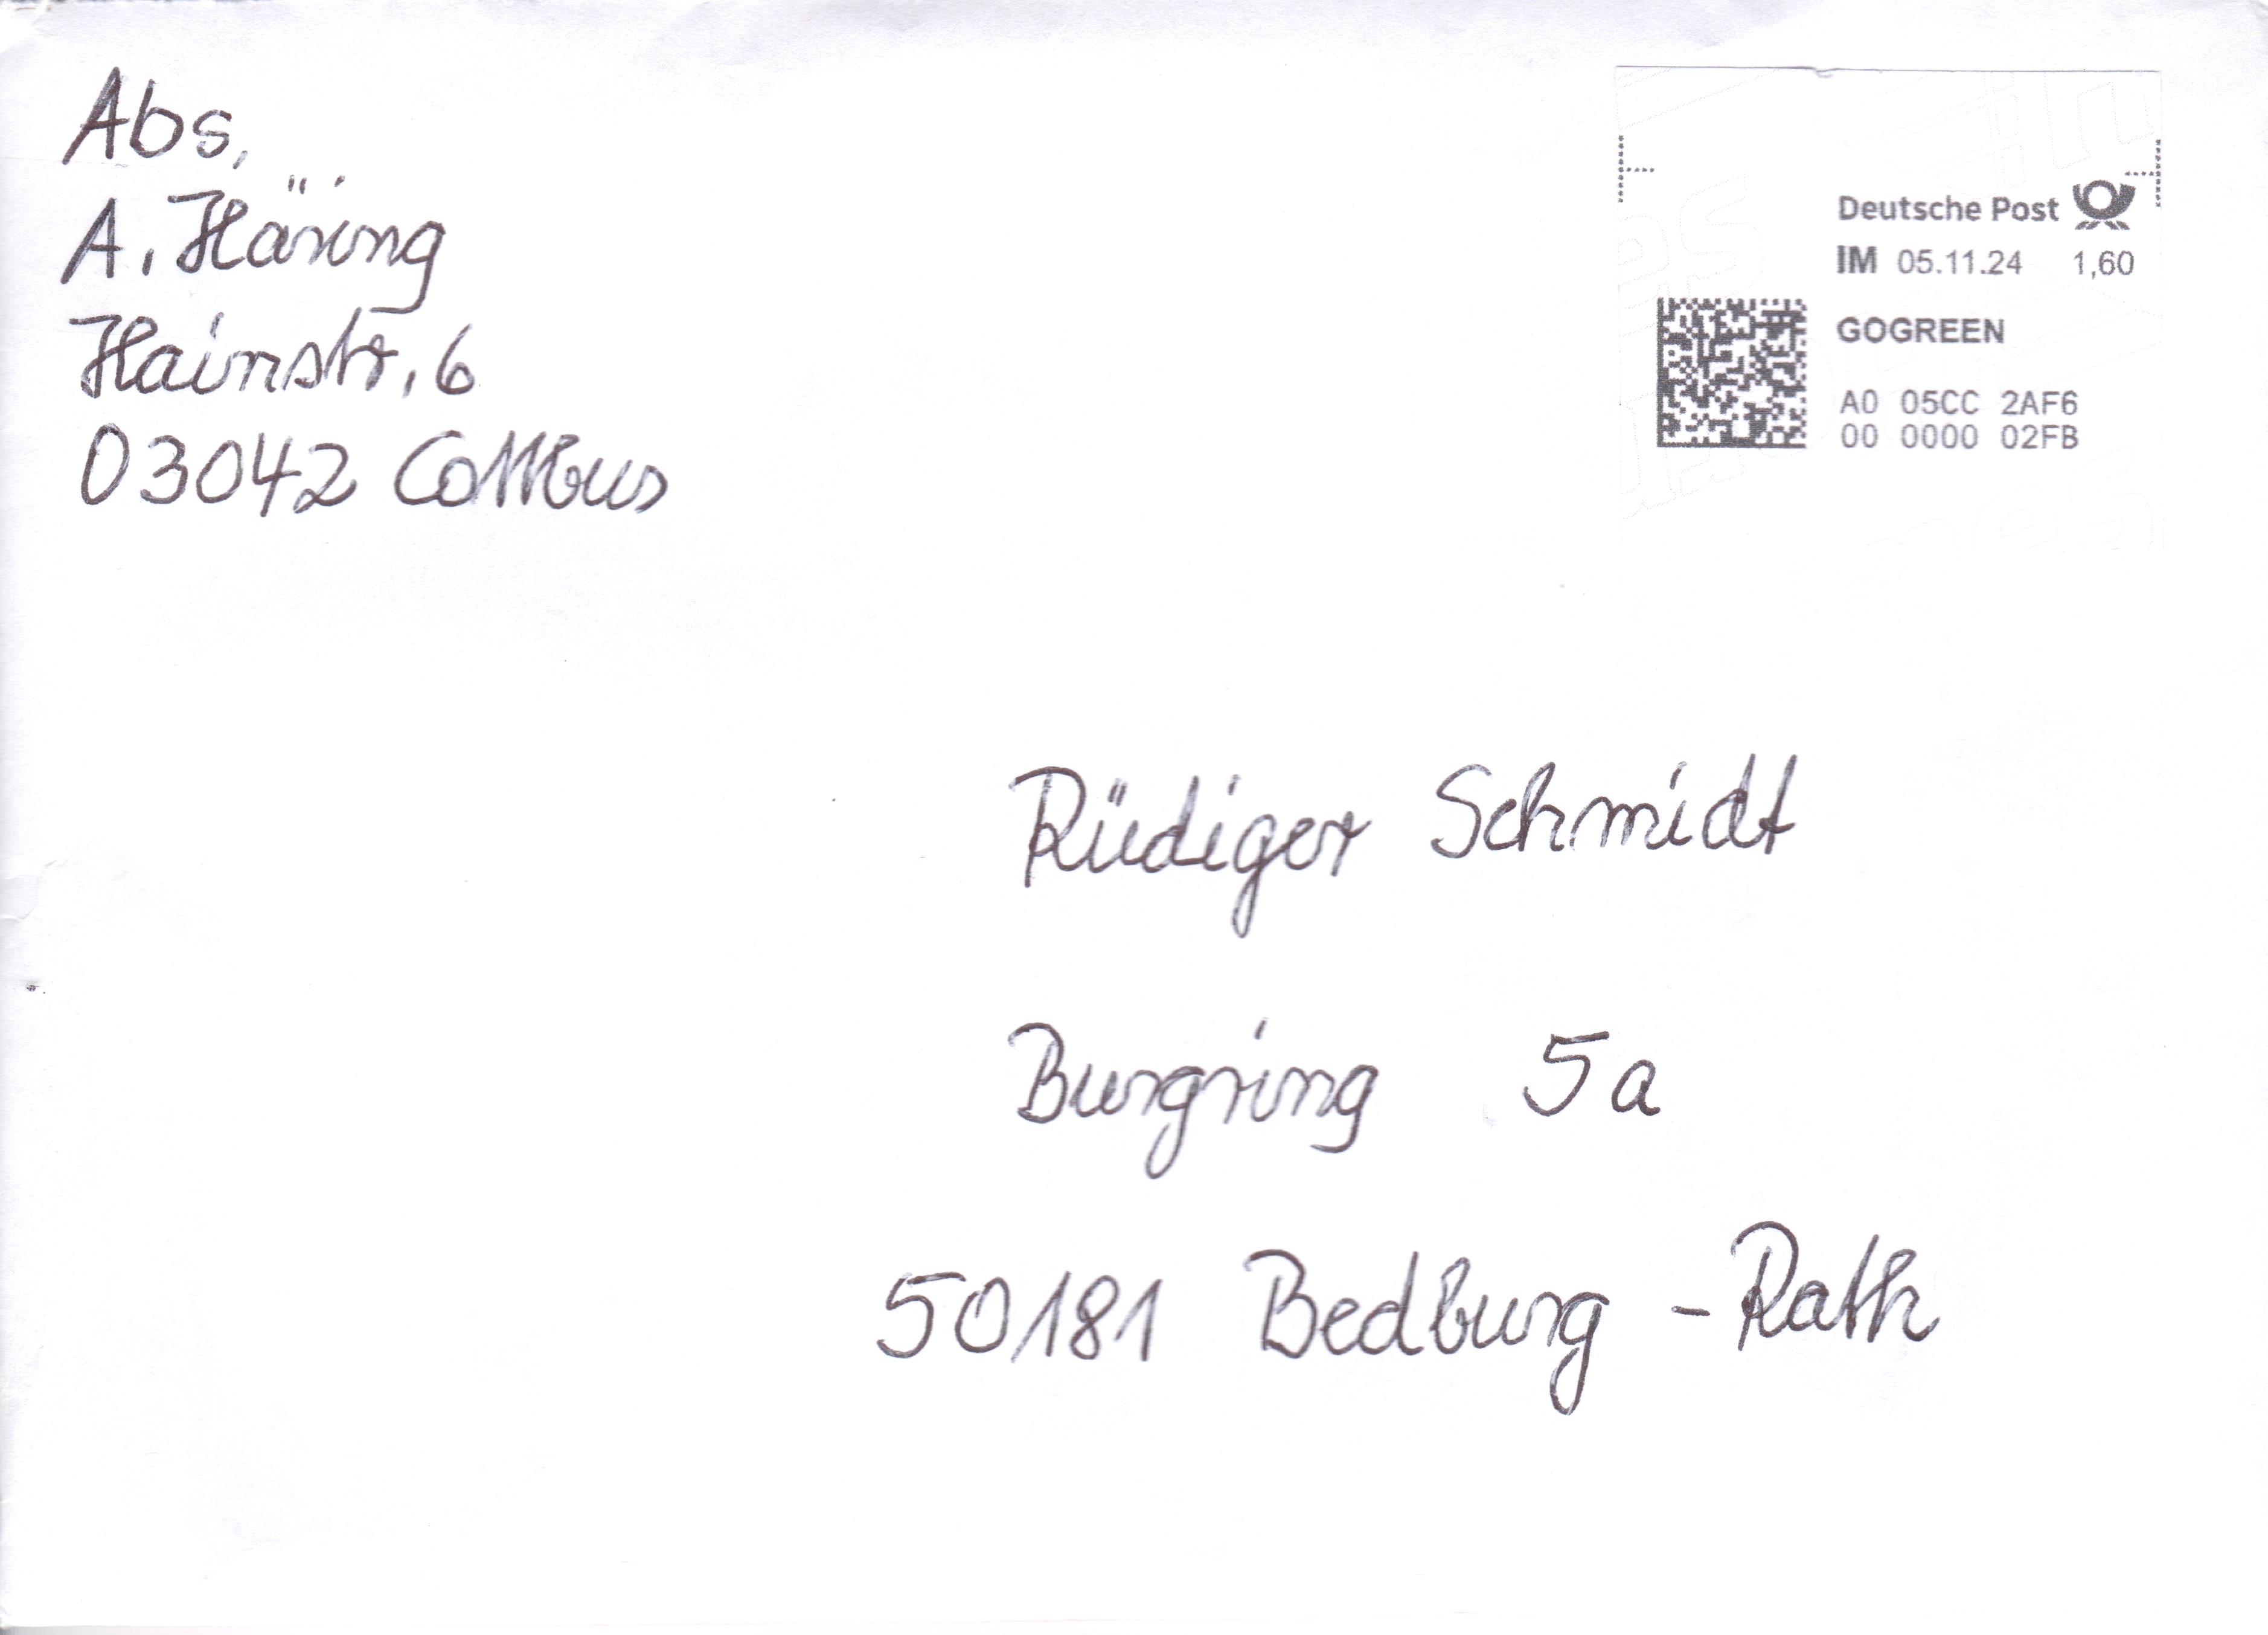 Abs,
A. Häring
Hainstr. 6
03042 Cottbus
Deutsche Post
IM 05.11.24 1,60
GOGREEN
A0 05CC 2AF6
00 0000 02FB
Rüdiger Schmidt
Burgring 5a
50181 Bedburg - Rath